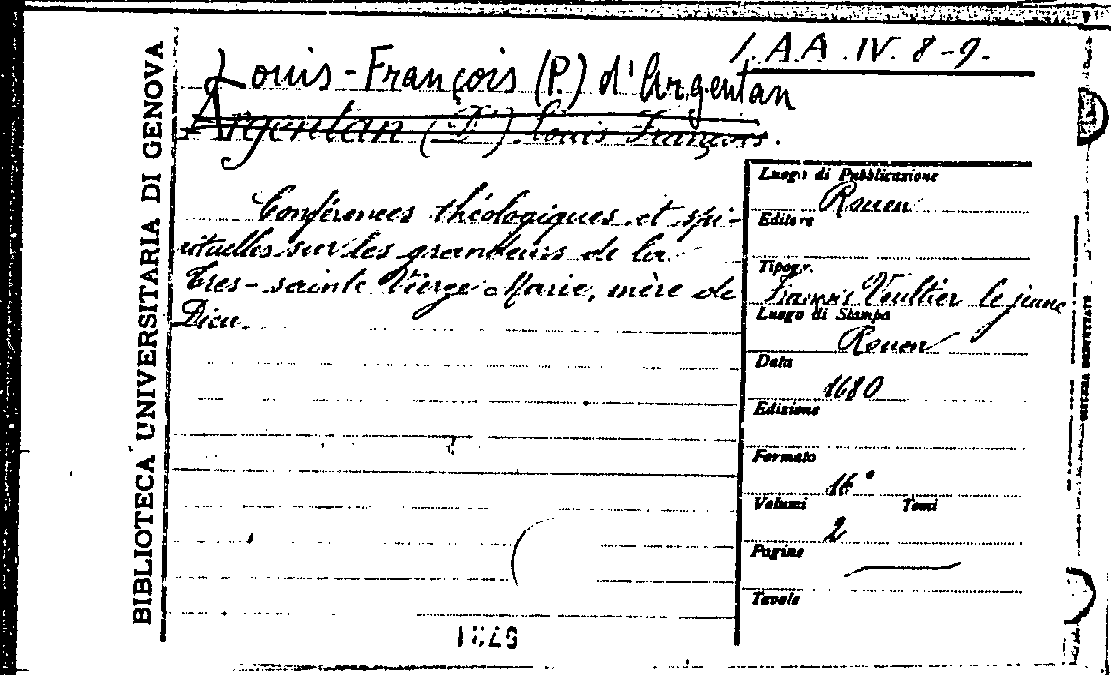 1.A.A.IV. 8-9.
Louis-François (P.) d'Argentan
Argentan (P.) Louis François.
BIBLIOTECA UNIVERSITARIA DI GENOVA
Conférences théologiques et spi-
rituelles sur les grandeurs de la
Très-sainte Vierge Marie, mère de
Dieu.
Luogo di Pubblicazione
Rouen
Editore
Tipogr.
François Vaultier le jeune
Luogo di Stampa
Rouen
Data
1680
Edizione
Formato
16°
Volumi Tomi
2
Pagine
Tavole